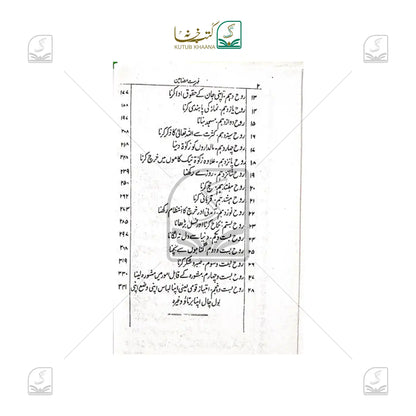 کتب خانہ
KUTUB KHAANA
۲ فہرست مضامین
۱۳ روح دہم، اپنی جان کے حقوق ادا کرنا
۱۴ روح یازدہم، نماز کی پابندی کرنا
۱۵ روح دوازدہم، مسجد بنانا
۱۶ روح سیزدہم، کثرت سے اللہ تعالیٰ کا ذکر کرنا
۱۷ روح چہاردہم، مالداروں کو زکوٰۃ دینا
۱۸ روح پانزدہم، علاوہ زکوٰۃ نیک کاموں میں خرچ کرنا
۱۹ روح شانزدہم، روزے رکھنا
۲۰ روح ہفتدہم، حج کرنا
۲۱ روح ہشتدہم، قربانی کرنا
۲۲ روح نوزدہم، آمدنی اور خرچ کا انتظام رکھنا
۲۳ روح بستم، نکاح کرنا اور نسل بڑھانا
۲۴ روح بست ویکم، دنیا سے دل نہ لگانا
۲۵ روح بست و دوم، گناہوں سے بچنا
۲۶ روح بست و سوم، صبر و شکر کرنا ۳۱۹
۲۷ روح بست و چہارم، مشورہ کے قابل امور میں مشورہ لینا ۳۳۰
۲۸ روح بست و پنجم، امتیاز قومی یعنی اپنا لباس اپنی وضع اپنی ۳۳۱
بول چال اپنا برتاؤ وغیرہ